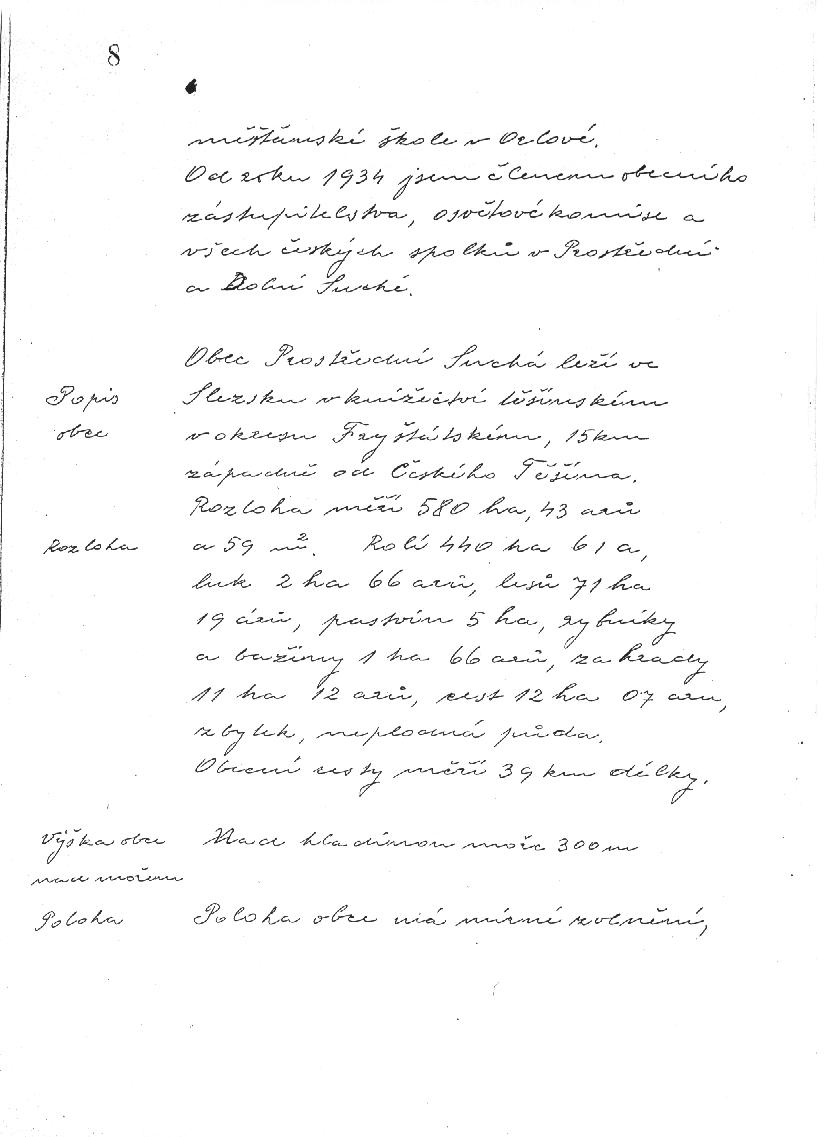 8
měšťanské škole v Orlové.
Od roku 1934 jsem členem obecního
zástupitelstva, osvětové komise a
všech českých spolků v Prostřední
a Dolní Suché.
Obec Prostřední Suchá leží ve
Popis Slezsku v knížectví těšínském
obce v okresu Fryštátském, 15 km
západně od Českého Těšína.
Rozloha měří 580 ha, 43 arů
Rozloha a 59 m². Rolí 440 ha 61 a,
luk 2 ha 66 arů, lesů 71 ha
19 árů, pastvin 5 ha, rybníky
a bažiny 1 ha 66 arů, zahrady
11 ha 12 arů, cest 12 ha 07 aru,
zbytek, neplodná půda.
Obecní cesty měří 39 km délky.
Výška obce Nad hladinou moře 300 m
nad mořem
Poloha Poloha obce má mírné zvlnění,